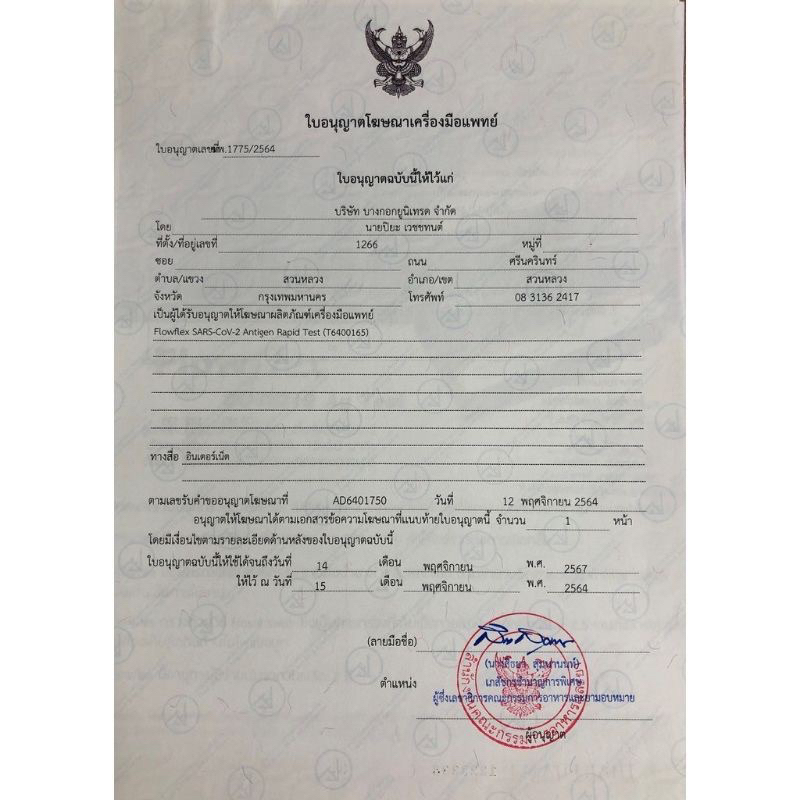 ใบอนุญาตโฆษณาเครื่องมือแพทย์
ใบอนุญาตเลขที่ฆพ.1775/2564
ใบอนุญาตฉบับนี้ให้ไว้แก่
บริษัท บางกอกยูนิเทรด จำกัด
โดย นายปิยะ เวชชทนต์
ที่ตั้ง/ที่อยู่เลขที่ 1266 หมู่ที่ -
ซอย - ถนน ศรีนครินทร์
ตำบล/แขวง สวนหลวง อำเภอ/เขต สวนหลวง
จังหวัด กรุงเทพมหานคร โทรศัพท์ 08 3136 2417
เป็นผู้ได้รับอนุญาตให้โฆษณาผลิตภัณฑ์เครื่องมือแพทย์
Flowflex SARS-CoV-2 Antigen Rapid Test (T6400165)
ทางสื่อ อินเตอร์เน็ต
ตามเลขรับคำขออนุญาตโฆษณาที่ AD6401750 วันที่ 12 พฤศจิกายน 2564
อนุญาตให้โฆษณาได้ตามเอกสารข้อความโฆษณาที่แนบท้ายใบอนุญาตนี้ จำนวน 1 หน้า
โดยมีเงื่อนไขตามรายละเอียดด้านหลังของใบอนุญาตฉบับนี้
ใบอนุญาตฉบับนี้ให้ใช้ได้จนถึงวันที่ 14 เดือน พฤศจิกายน พ.ศ. 2567
ให้ไว้ ณ วันที่ 15 เดือน พฤศจิกายน พ.ศ. 2564
(ลายมือชื่อ)
เภสัชกรชำนาญการพิเศษ
ตำแหน่ง
ผู้ซึ่งเลขาธิการคณะกรรมการอาหารและยามอบหมาย
ผู้อนุญาต